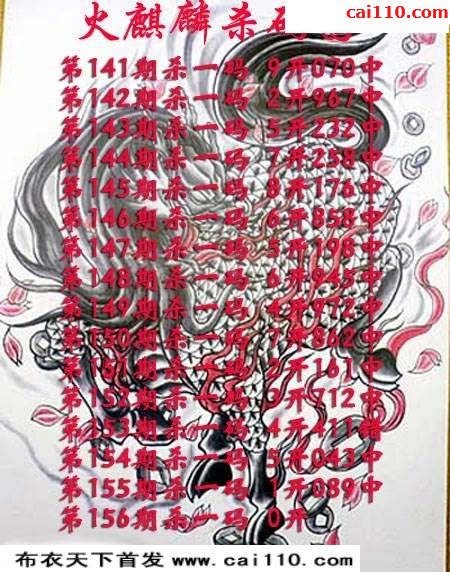 cai110.com
火麒麟杀码
第141期杀一码 9开070中
第142期杀一码 2开967中
第143期杀一码 5开232中
第144期杀一码 7开258中
第145期杀一码 8开176中
第146期杀一码 6开858中
第147期杀一码 5开198中
第148期杀一码 6开945中
第149期杀一码 4开972中
第150期杀一码 7开862中
第151期杀一码 2开161中
第152期杀一码 开712中
第153期杀一码 4开411错
第154期杀一码 5开043中
第155期杀一码 1开089中
第156期杀一码 0开
布衣天下首发 www.cai110.com